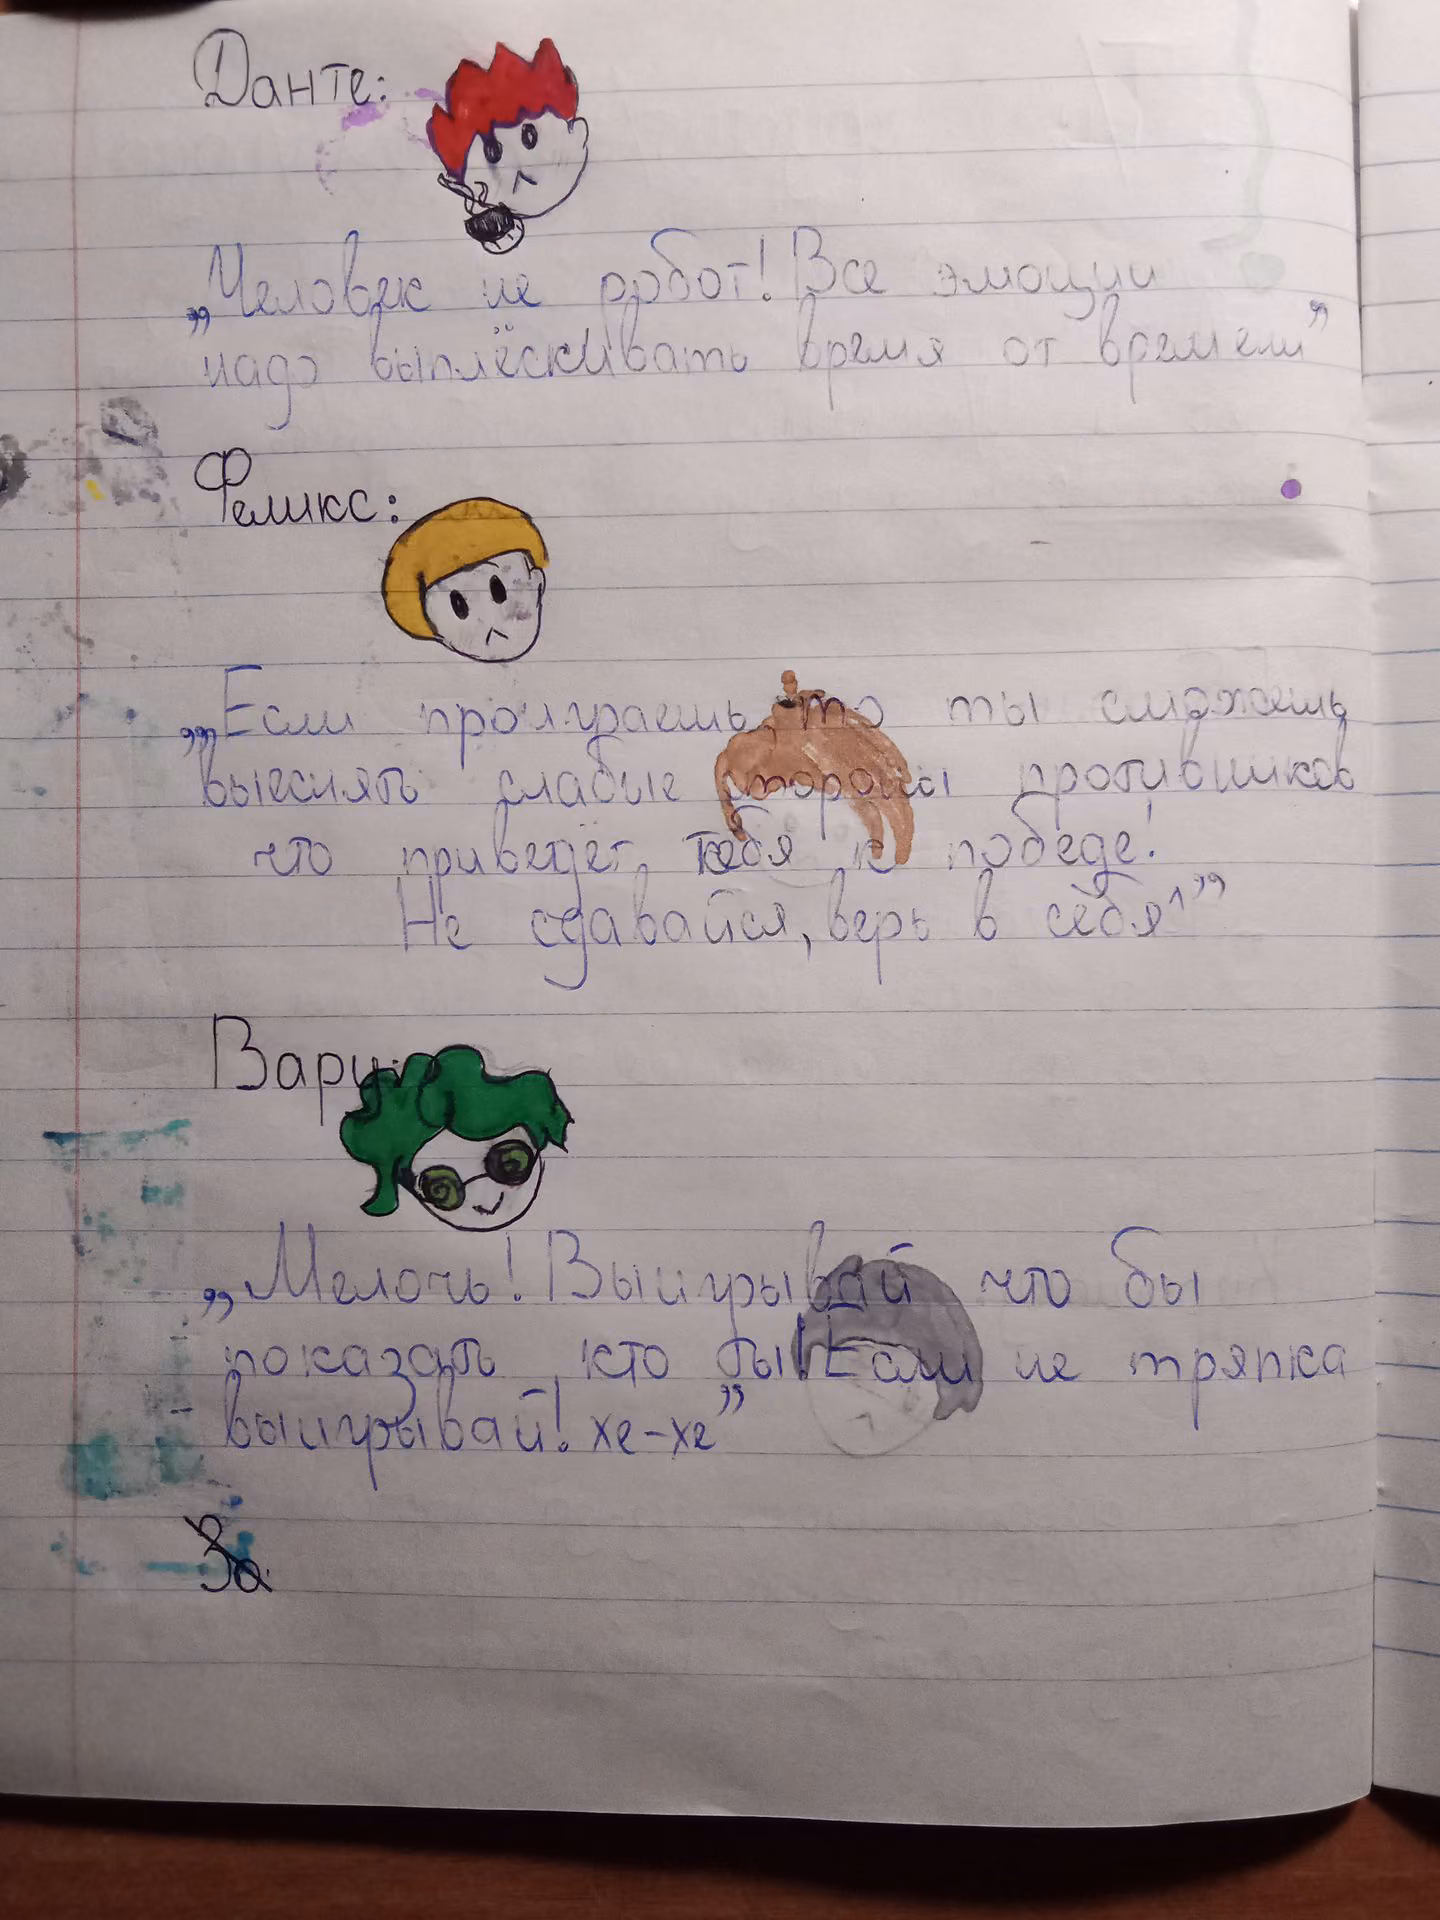 Данте:
„Человек не робот! Все эмоции
надо выплёскивать время от времени”
Феликс:
„Если проиграешь то ты сможешь
выеснять слабые стороны противников
что приведёт тебя к победе!
Не сдавайся, верь в себя!”
Вари:
„Мелочь! Выигрывай что бы
показать кто ты! Если не тряпка
выигрывай! хе-хе”
За